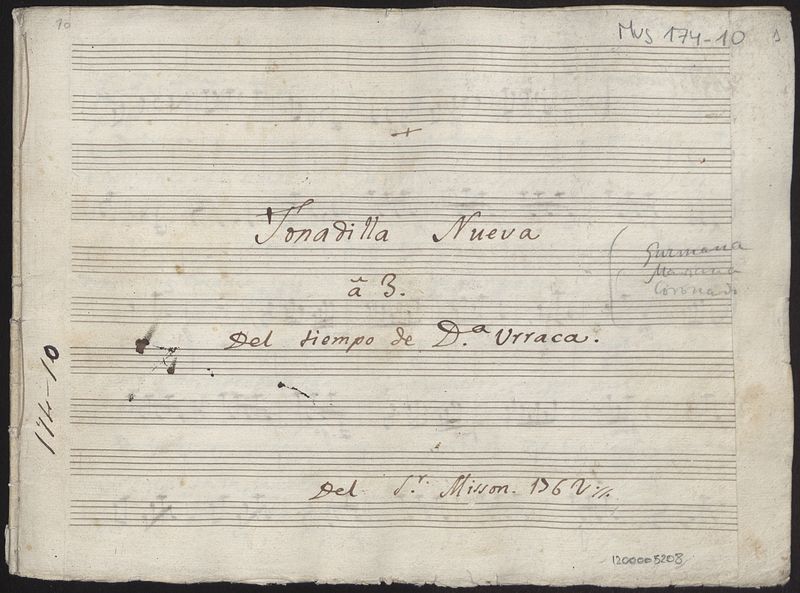 10
Mus 174-10
1
Tonadilla Nueva
â 3.
Del tiempo de D.ª Urraca.
Guzmana
Mariana
Coronado
174-10
Del S.r Misson. 1762
1200005208